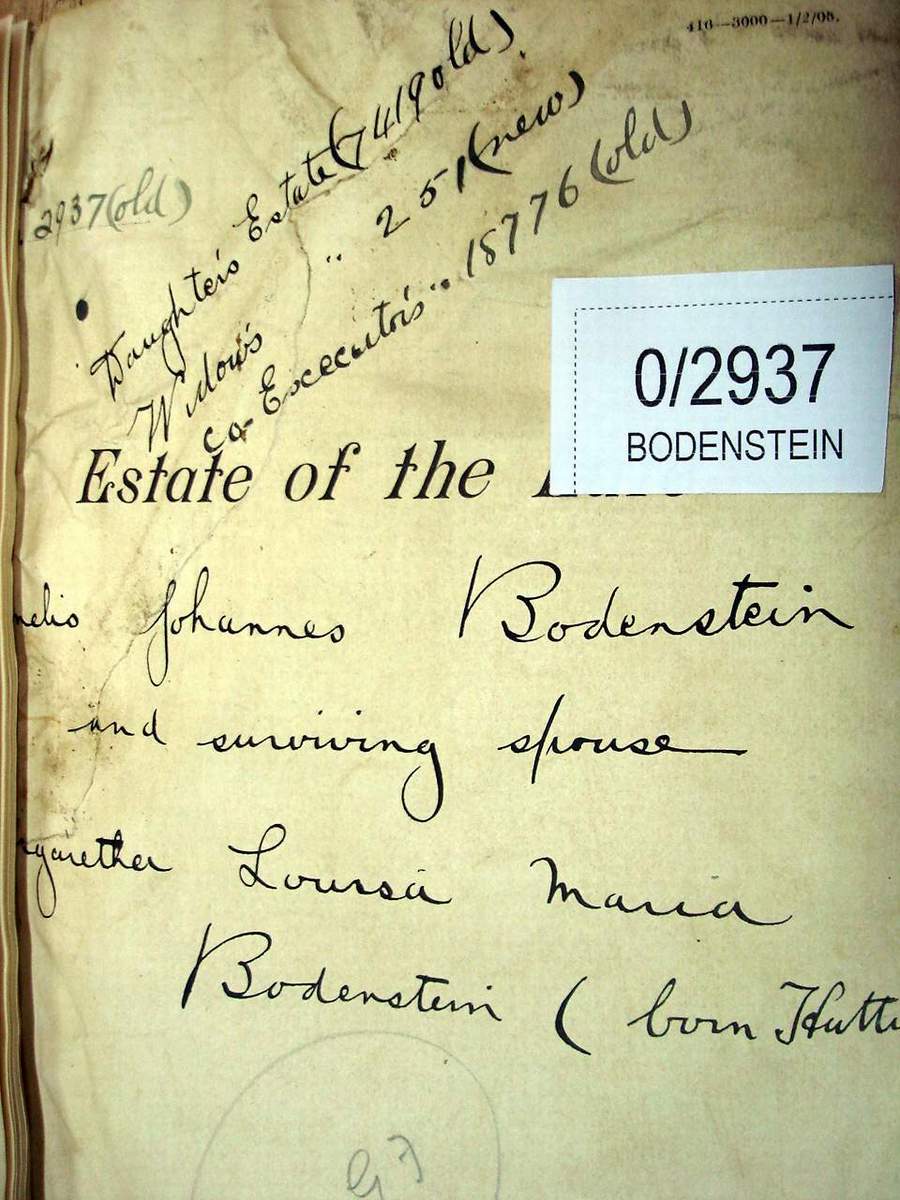 416—3000—1/2/08.
2937 (old)
Daughter's Estate (7419 old).
Widow's " 251 (new)
Co-Excecutor's " 18776 (old)
0/2937
BODENSTEIN
Estate of the
nelis Johannes Bodenstein
and surviving spouse
rgarether Louisa Maria
Bodenstein ( born Hutt